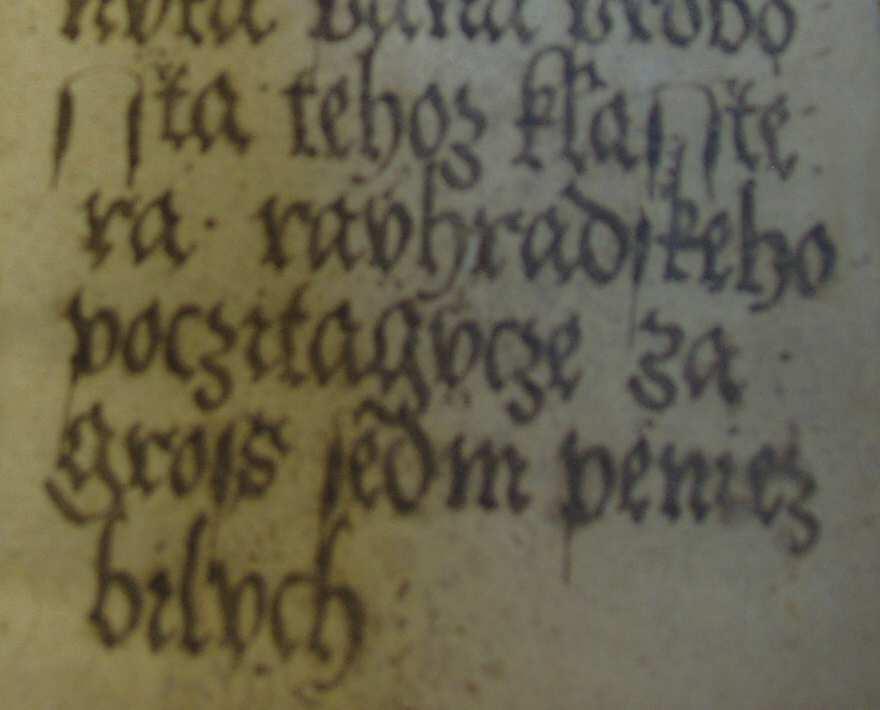 pana probo
ſſta tehoz klaſſte
ra · rayhradſkeho
poczitagycze za ·
Groſs ſedm peniez
bilych :